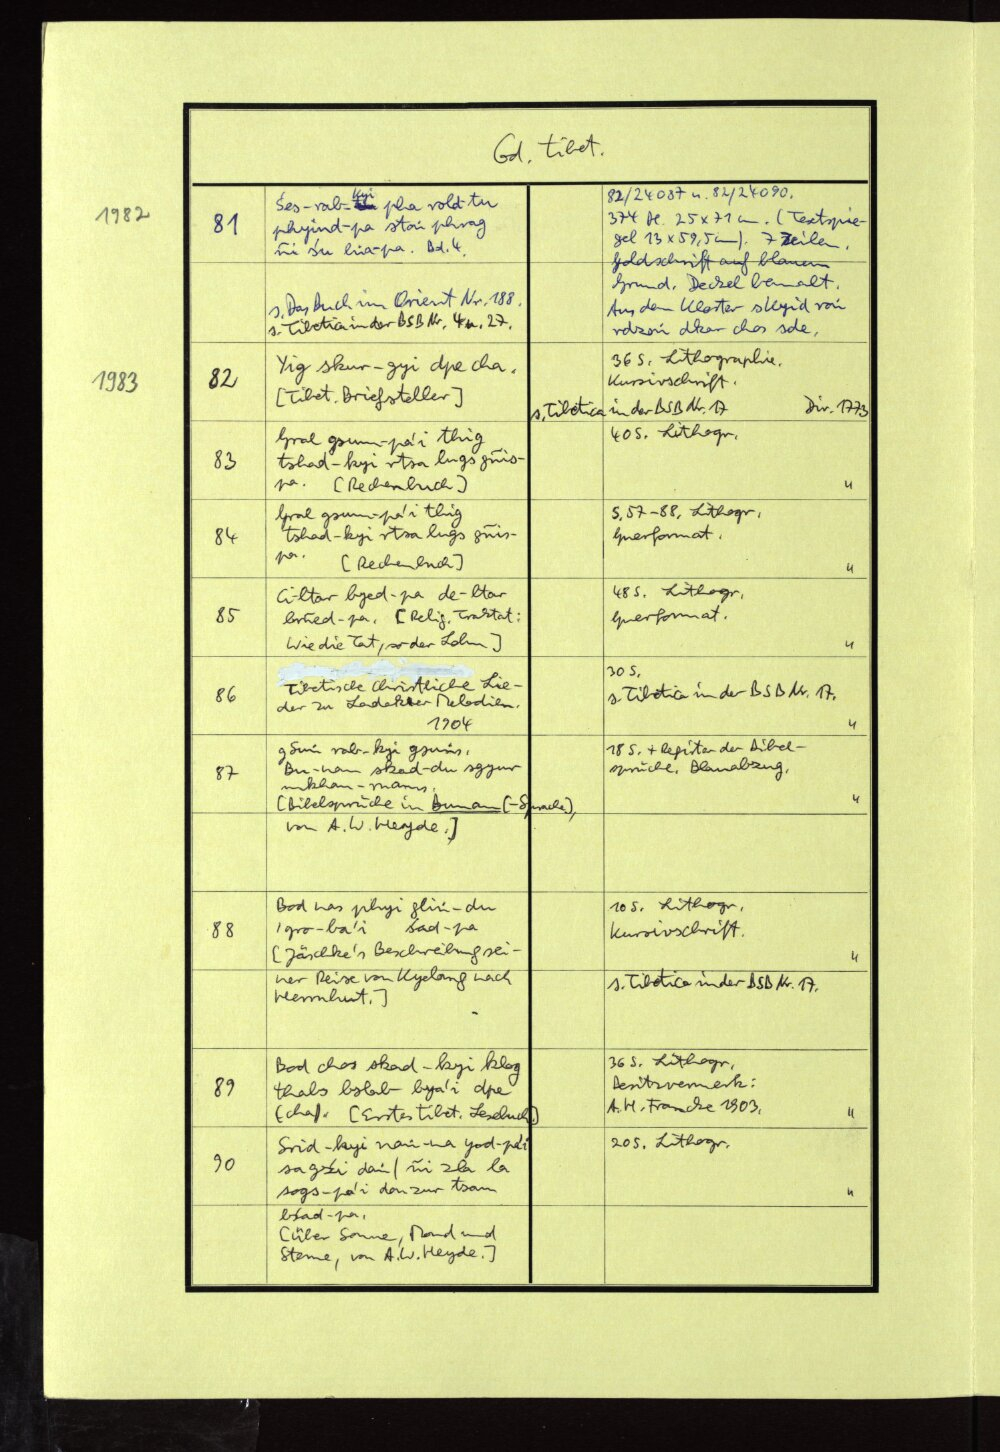 Cod. tibet.
1982
81
Śes-rab-kyi pha rold-tu
phyind-pa stoṅ phrag
ñi śu lṅa-pa. Bd. 4.
s. Das Buch im Orient Nr. 188.
s. Tibetica in der BSB Nr. 4 u. 27.
82/24087 u. 82/24090.
374 Bl. 25 x 71 cm. (Textspie-
gel 13 x 59,5 cm). 7 Zeilen.
Goldschrift auf blauem
Grund. Deckel bemalt.
Aus dem Kloster skyid roṅ
rdzoṅ dkar chos sde.
1983
82
Yig skur-gyi dpe cha.
[Tibet. Briefsteller]
36 S. Lithographie.
Kursivschrift.
s. Tibetica in der BSB Nr. 17
Div. 1773
83
Gral gsum-pa'i thig
tshad-kyi rtsa lugs gñis-
pa. [Rechenbuch]
40 S. Lithogr.
"
84
Gral gsum-pa'i thig
tshad-kyi rtsa lugs gñis-
pa. [Rechenbuch]
S. 57-88, Lithogr.
Querformat.
"
85
Ci-ltar byed-pa de-ltar
brñed-pa. [Relig. Traktat:
Wie die Tat, so der Lohn]
48 S. Lithogr.
Querformat.
"
86
Tibetische christliche Lie-
der zu Ladakher Melodien.
1904
30 S.
s. Tibetica in der BSB Nr. 17.
"
87
gSuṅ rab-kyi gsuṅs.
Bu-nan skad-du sgyur
mkhan-rnams.
[Bibelsprüche in Bunan (-Sprache),
von A.W. Heyde.]
18 S. + Register der Bibel-
sprüche. Blauabzug.
"
88
Bod nas phyi gliṅ-du
'gro-ba'i śad-pa
[Jäschke's Beschreibung sei-
ner Reise von Kyelang nach
Herrnhut.]
10 S. Lithogr.
Kursivschrift.
"
s. Tibetica in der BSB Nr. 17.
89
Bod chos skad-kyi klog
thabs bslab bya'i dpe
(cha). [Erstes tibet. Lesebuch]
36 S. Lithogr.
Besitzvermerk:
A.H. Francke 1903.
"
90
Srid-kyi naṅ-na yod-pa'i
sa gźi daṅ / ñi zla la
sogs-pa'i don zur tsam
bśad-pa.
[Über Sonne, Mond und
Sterne, von A.W. Heyde.]
20 S. Lithogr.
"